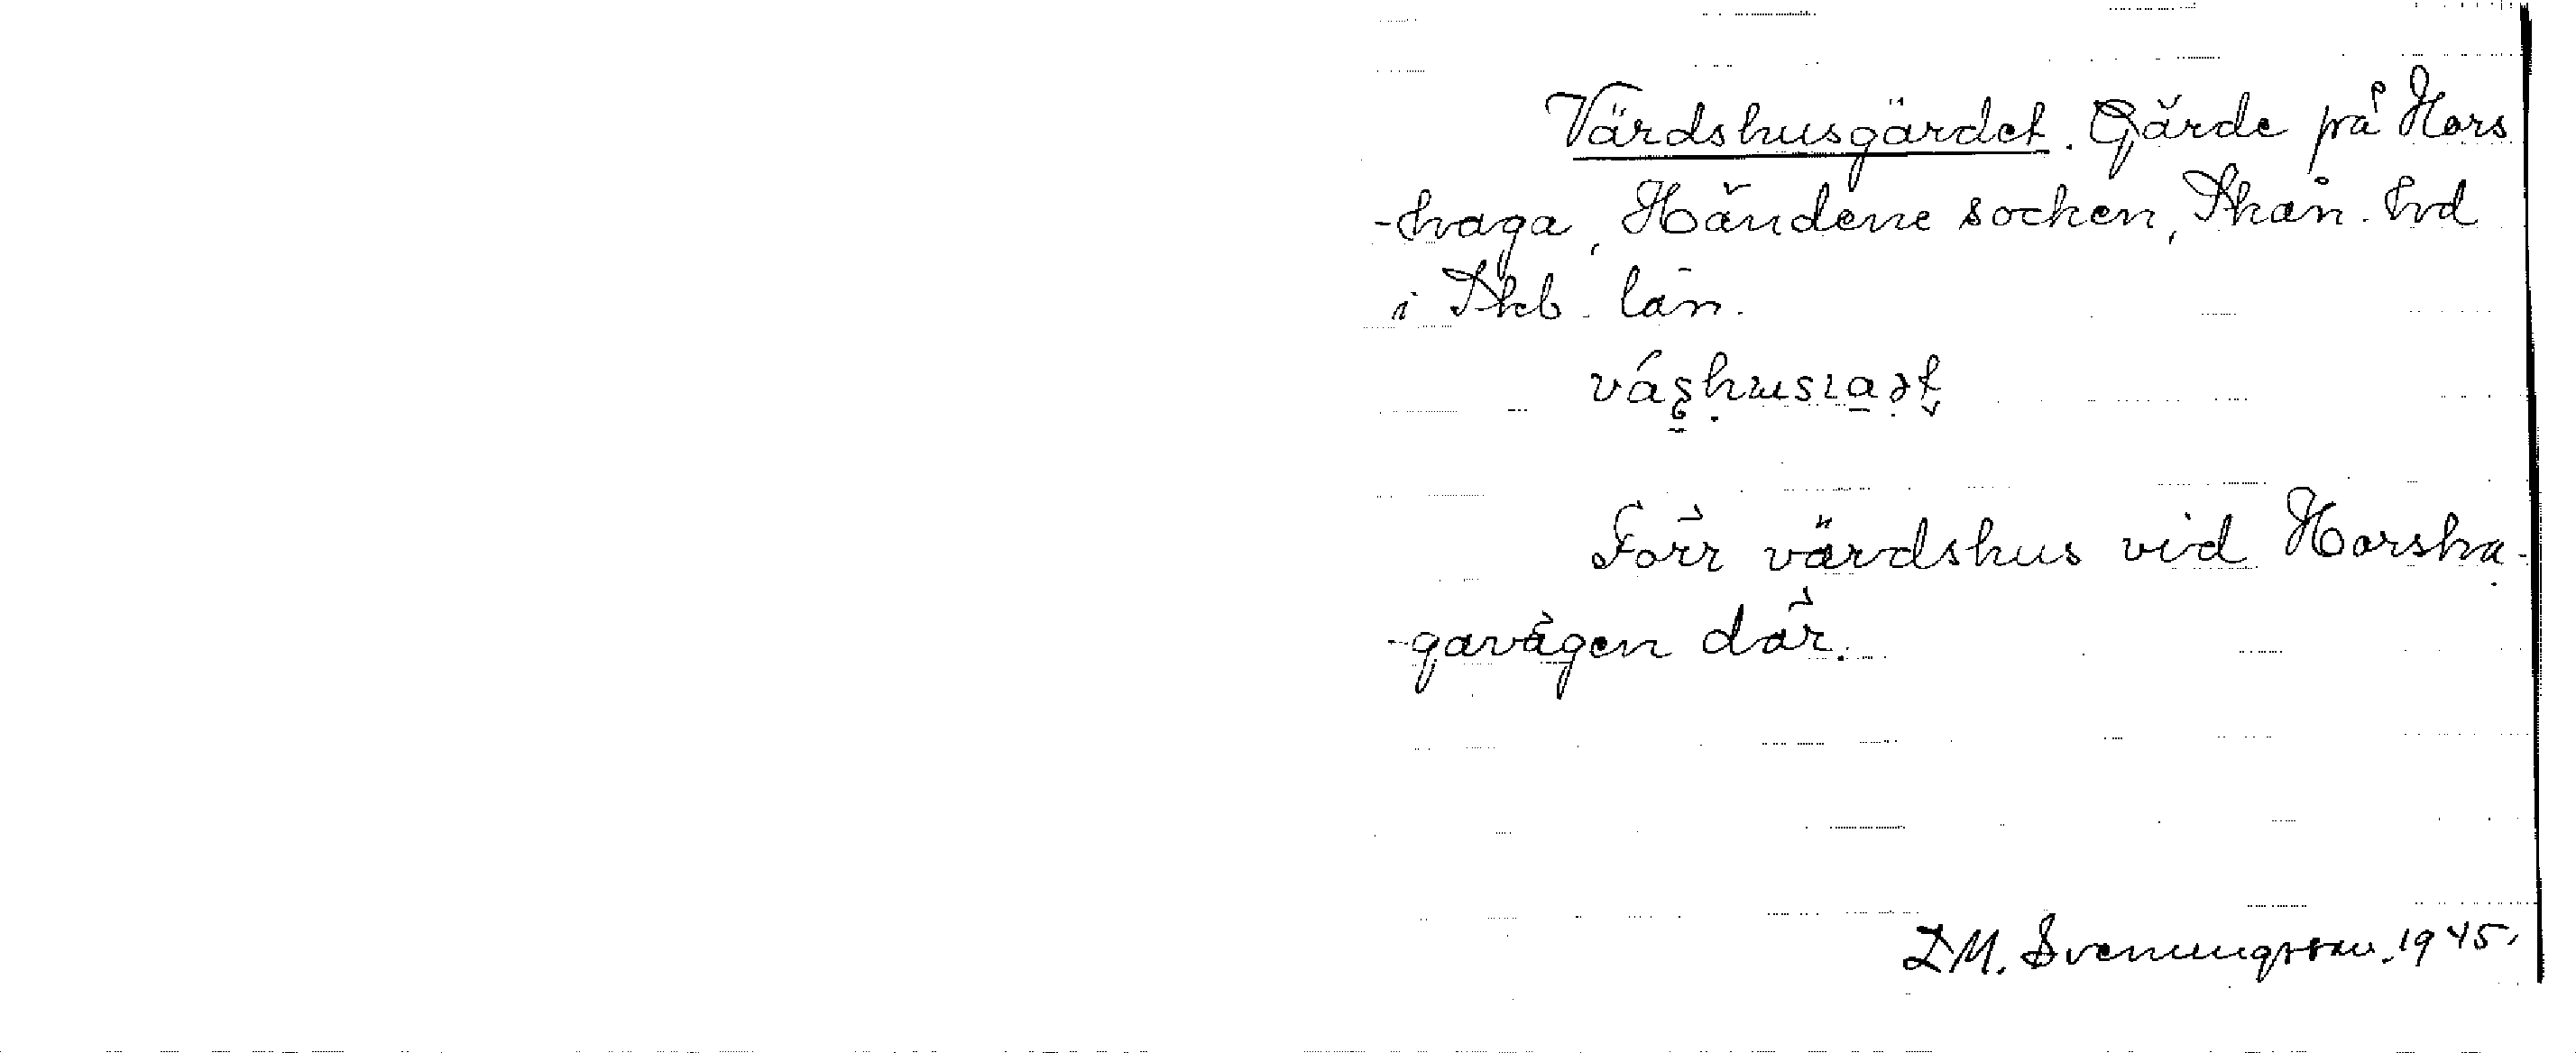 Värdshusgärdet. Gärde på Hors
-haga, Händene socken, Skån. hd
i Skb. län.
Förr värdshus vid Horsha-
-gavägen där.
D M. Svenungsson. 1945.